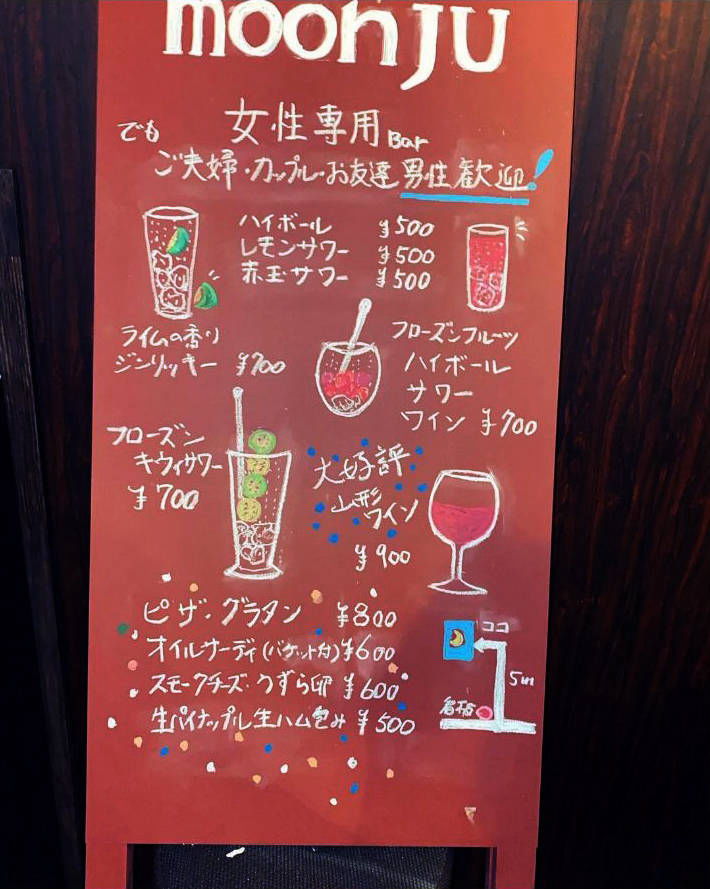 moonJU
女性専用Bar
でも
ご夫婦・カップル・お友達 男性歓迎!
ハイボール ¥500
レモンサワー ¥500
赤玉サワー ¥500
ライムの香り
ジンリッキー ¥700
フローズンフルーツ
ハイボール
サワー
ワイン ¥700
フローズン
キウィサワー
¥700
大好評
山形
ワイン
¥900
ピザ・グラタン ¥800
オイルサーディ(バケット付)¥600
スモークチーズ・うずら卵 ¥600
生パイナップル生ハム包み ¥500
ココ
5m
看板